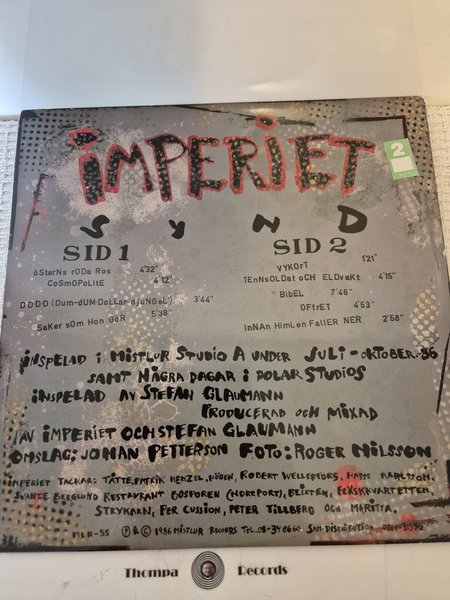 iMPERiET
2
SYND
SID 1
SID 2
öSTerNs rÖDa Ros 4'32"
CoSmOPoLitE 4'12"
DDDD (Dum-dUM-DoLLar djUNGeL') 3'44"
SaKer sOm Hon GöR 5'38"
VYKOrT 1'21"
TEnnSOLDat oCH ELDvaKt 4'15"
BibEL 7'46"
OFfrET 4'53"
InNAn HimLen FallER NER 2'58"
iNSPELAD i MiSTLUR STUDiO A UNDER JULi-OKTOBER-86
SAMT NÅGRA DAGAR i POLAR STUDiOS
iNSPELAD AV STEFAN GLAUMANN
PRODUCERAD OCH MiXAD
AV iMPERiET OCH STEFAN GLAUMANN
OMSLAG: JOHAN PETTERSON FOTO: ROGER NiLSSON
iMPERiET TACKAR: TÄTTE, PATRiK HENZEL, ROBERT WELLERFORS, KARLSSON,
SVANTE BERGLUND RESTAURANT BOSFOREN (NORRPORT), BLiXTEN, FLÄSKKVARTETTEN,
STRYKARN, PER CUSSiON, PETER TiLLBERG OCH MARiTTA.
MLR-55 ℗ & © 1986 MiSTLUR RECORDS TEL. 08-34 86 60. SAM-DiSTRiBUTiON
Thompa Records